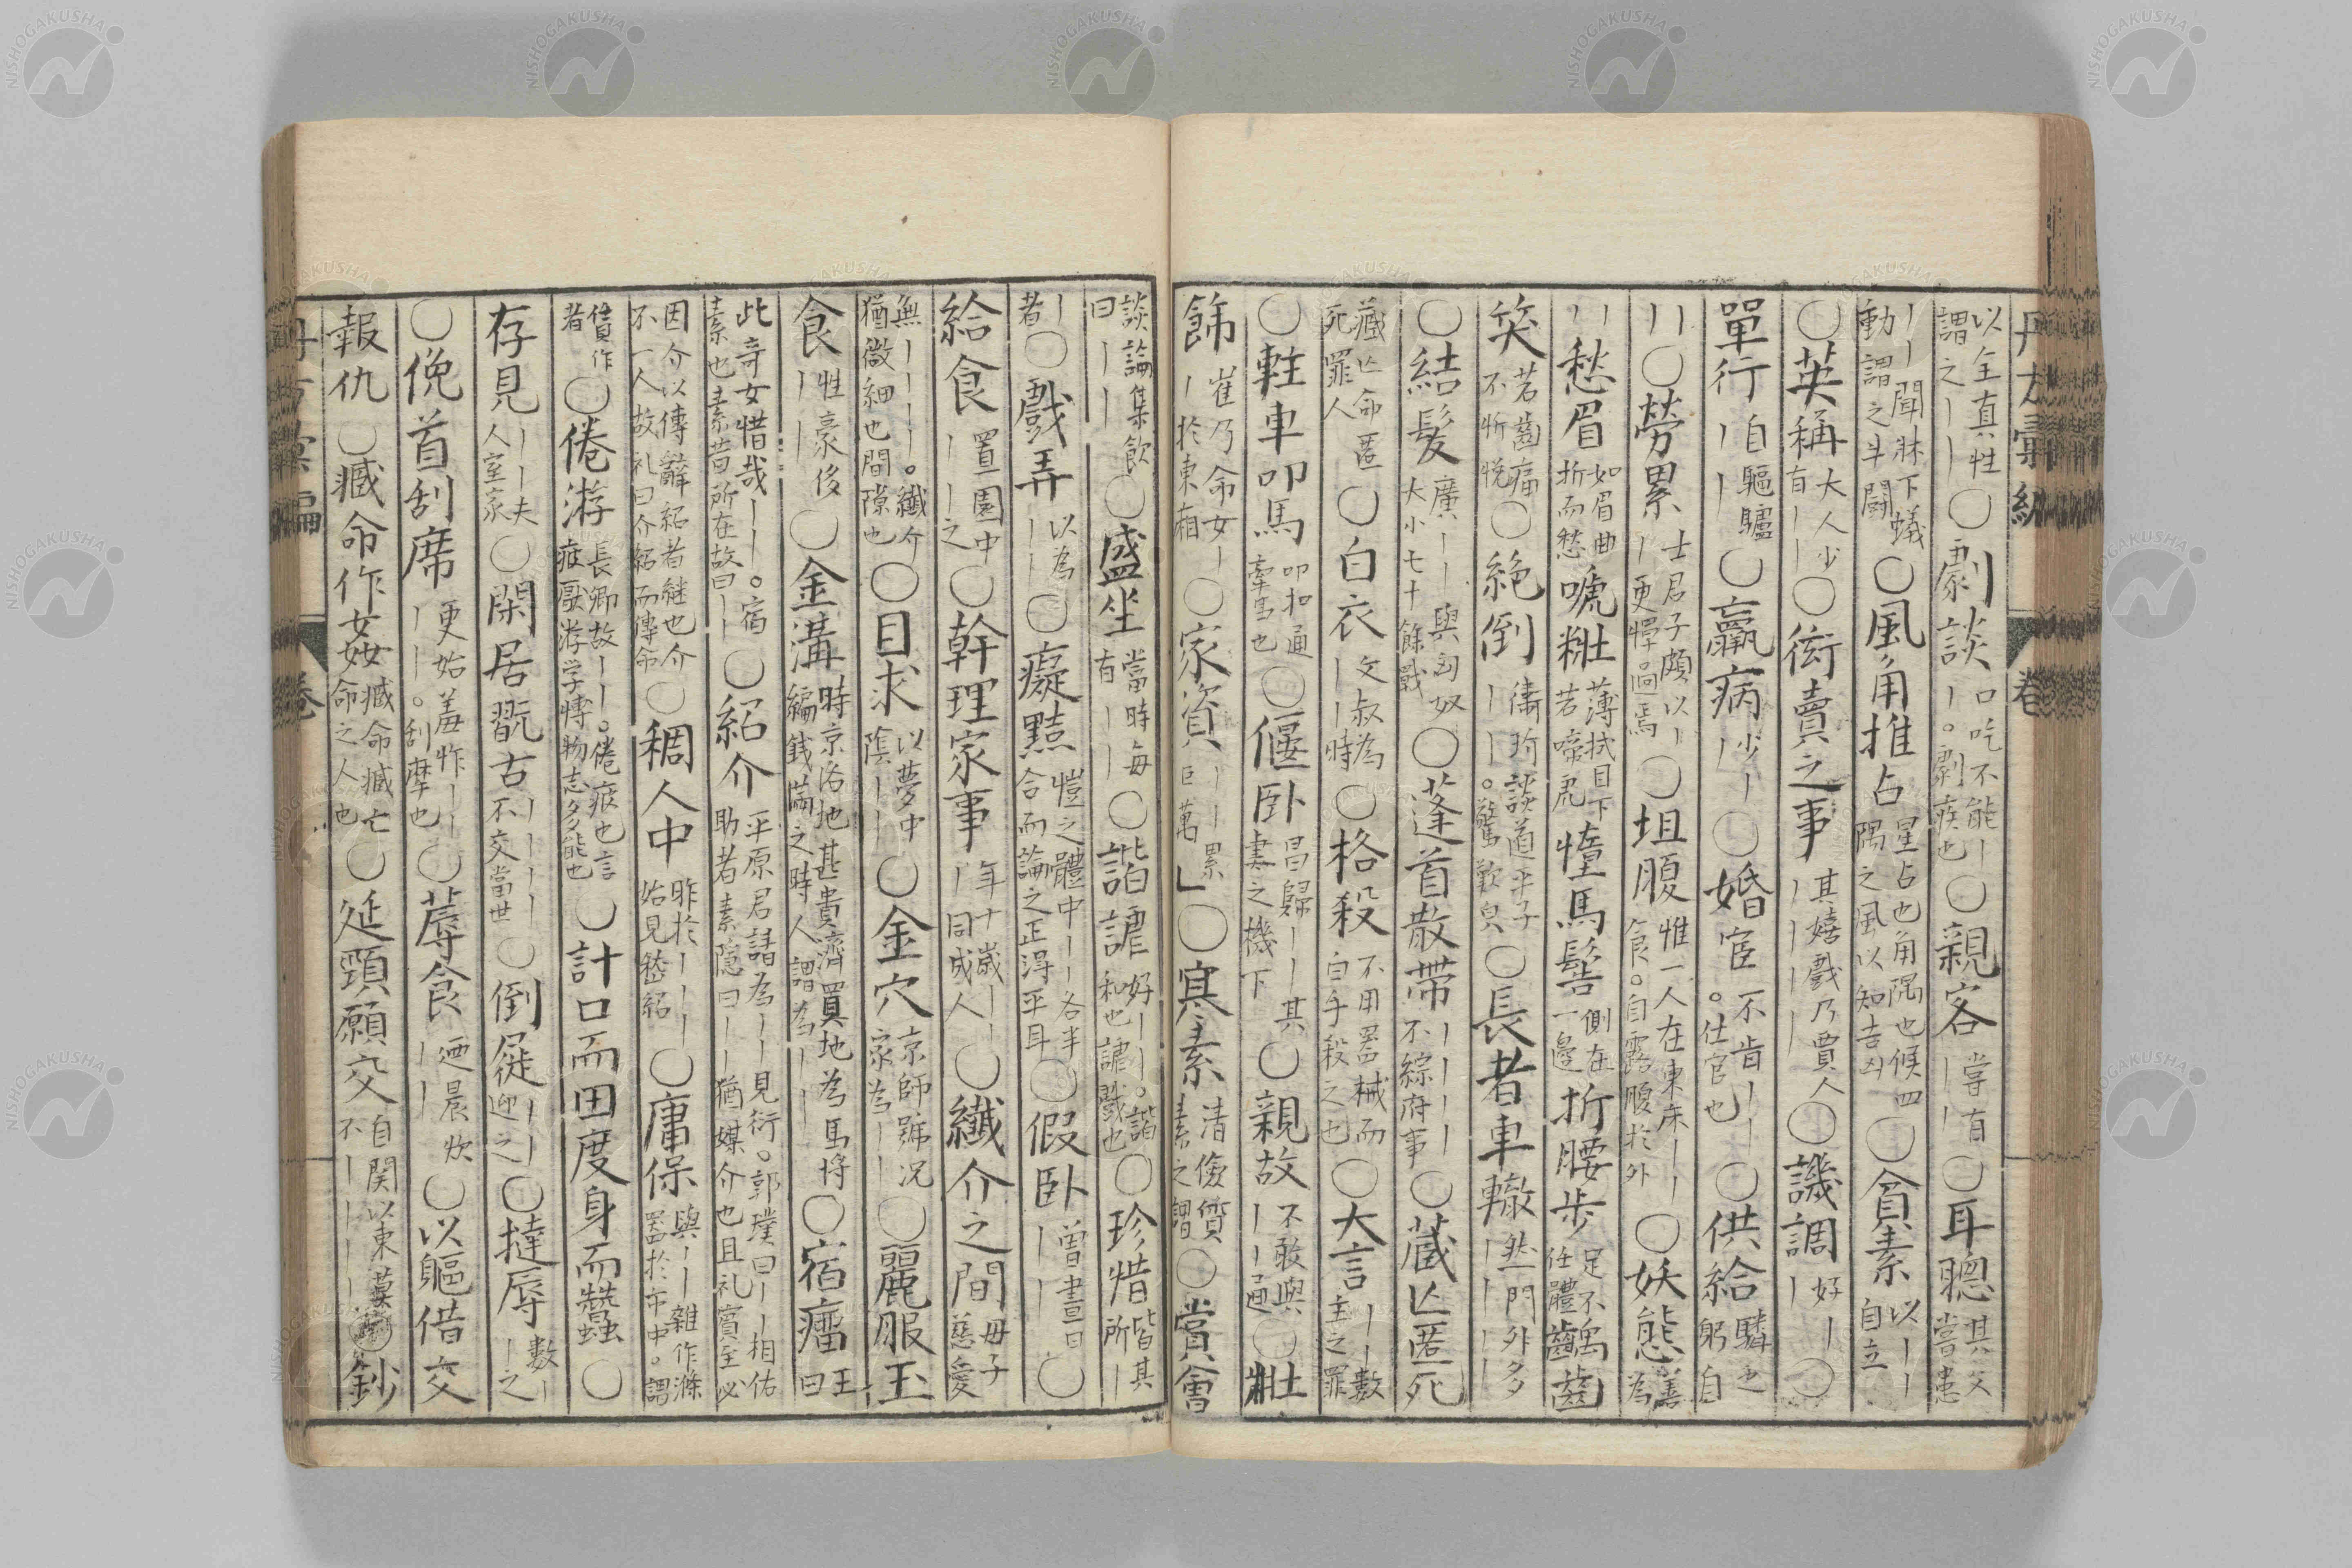 以全真性
謂之丨丨〇劇談口吃不能丨
丨。劇疾也〇親客嘗有
丨丨〇耳聰其父
嘗患
丨丨聞牀下蟻
動謂之牛鬪〇風角推占星占也角隅也候四
隅之風以知吉凶〇貧素以丨丨
自立
〇英稱大人少
有丨丨〇衒賣之事其嬉戲乃賈人
丨丨丨丨〇譏調好丨
丨〇
單行自驅驢
丨丨〇羸病少丨
丨〇婚宦不肯丨丨
。仕官也〇供給驎之
躬自
丨丨〇勞累士君子頗以丨
丨更憚過焉〇坦腹惟一人在東床丨丨
食。自露腹於外〇妖態善
為
丨丨愁眉如眉曲
折而愁啼粧薄拭目下
若啼兒墮馬髻側在
一邊折腰步足不
任體齲齒
笑若齒痛
不忻悅〇絕倒衛玠談道平子
丨丨。驚歎皃〇長者車轍然門外多
丨丨丨丨
〇結髮廣丨丨與匈奴
大小七十餘戰〇蓬首散帶丨丨丨丨
不綜府事〇藏亡匿死
藏亡命匿
死罪人〇白衣文叔為
丨丨時〇格殺不用器械而
白手殺之也〇大言丨丨數
主之罪
〇軠車叩馬叩扣通
牽馬也〇偃臥昌歸丨丨其
妻之機下〇親故不敢與
丨丨通〇壯
飾崔乃命女丨
丨於東廂〇家資丨丨累
巨萬」〇寒素清儉質
素之謂〇賞會
談論集飲
曰丨丨〇盛坐當時每
有丨丨〇諧謔好丨丨。諧
和也謔戲也〇珍惜皆其
所丨
丨
者〇戲弄以為
丨丨〇癡黠愷之體中丨丨各半
合而論之正得平耳〇假臥曾晝日
丨丨〇
給食置園中
丨丨之〇幹理家事年十歲丨丨
丨同成人〇纖介之間母子
慈愛
無丨丨丨丨。纖介
猶微細也間隙也〇目求以夢中
陰丨丨〇金穴京師號況
家為丨丨〇麗服玉
食性豪侈
丨丨〇金溝時京洛地甚貴濟買地為馬埒
編錢滿之時人謂為丨丨〇宿瘤王
曰
此奇女惜哉丨丨。宿
素也素昔所在故曰丨〇紹介平原君請為丨丨見衍。郭璞曰丨丨相佑
助者素隱曰丨丨猶媒介也且礼賓至必
因介以傳辭紹者継也介
不一人故礼曰介紹而傳命〇稠人中昨於丨丨丨
始見嵇紹〇庸保與丨丨雜作滌
器於市中。謂
賃作
者〇倦游長卿故丨丨。倦疲也言
疲厭游学博物志多能也〇計口而田度身而蠶〇
存見丨丨夫
人室家〇閑居翫古丨丨丨丨
不交當世〇倒屣丨丨
迎之〇撻辱數丨
丨之
〇俛首刮席更始羞怍丨丨
丨丨。刮摩也〇蓐食廼晨炊
丨丨〇以軀借交
報仇〇臧命作姦臧命臧亡
命之人也〇延頸願交自関以東莫
不丨丨丨丨鈔
卷